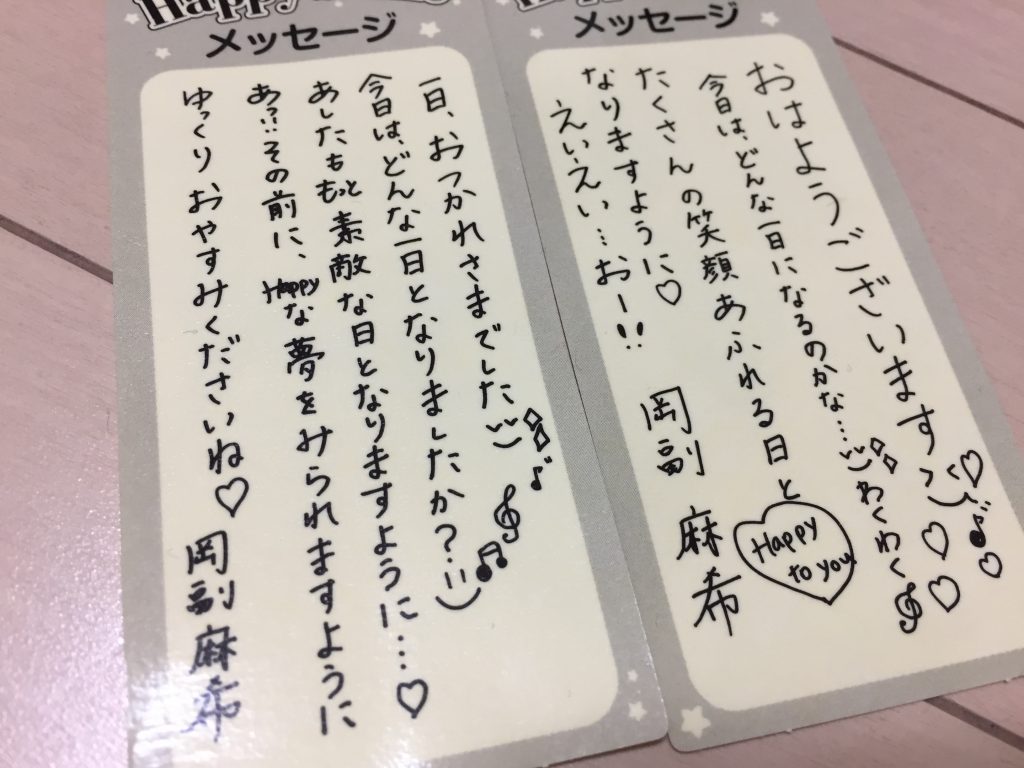 Happy
メッセージ
おはようございます
今日は、どんな一日になるのかな…わくわく
たくさんの笑顔あふれる日と
なりますように♡
えいえい…おー!!
岡副 麻希
Happy
to you
Happy
メッセージ
一日、おつかれさまでした
今日は、どんな一日となりましたか?
あしたももっと素敵な日となりますように…♡
あっ!!その前に、Happyな夢をみられますように
ゆっくりおやすみくださいね♡
岡副麻希